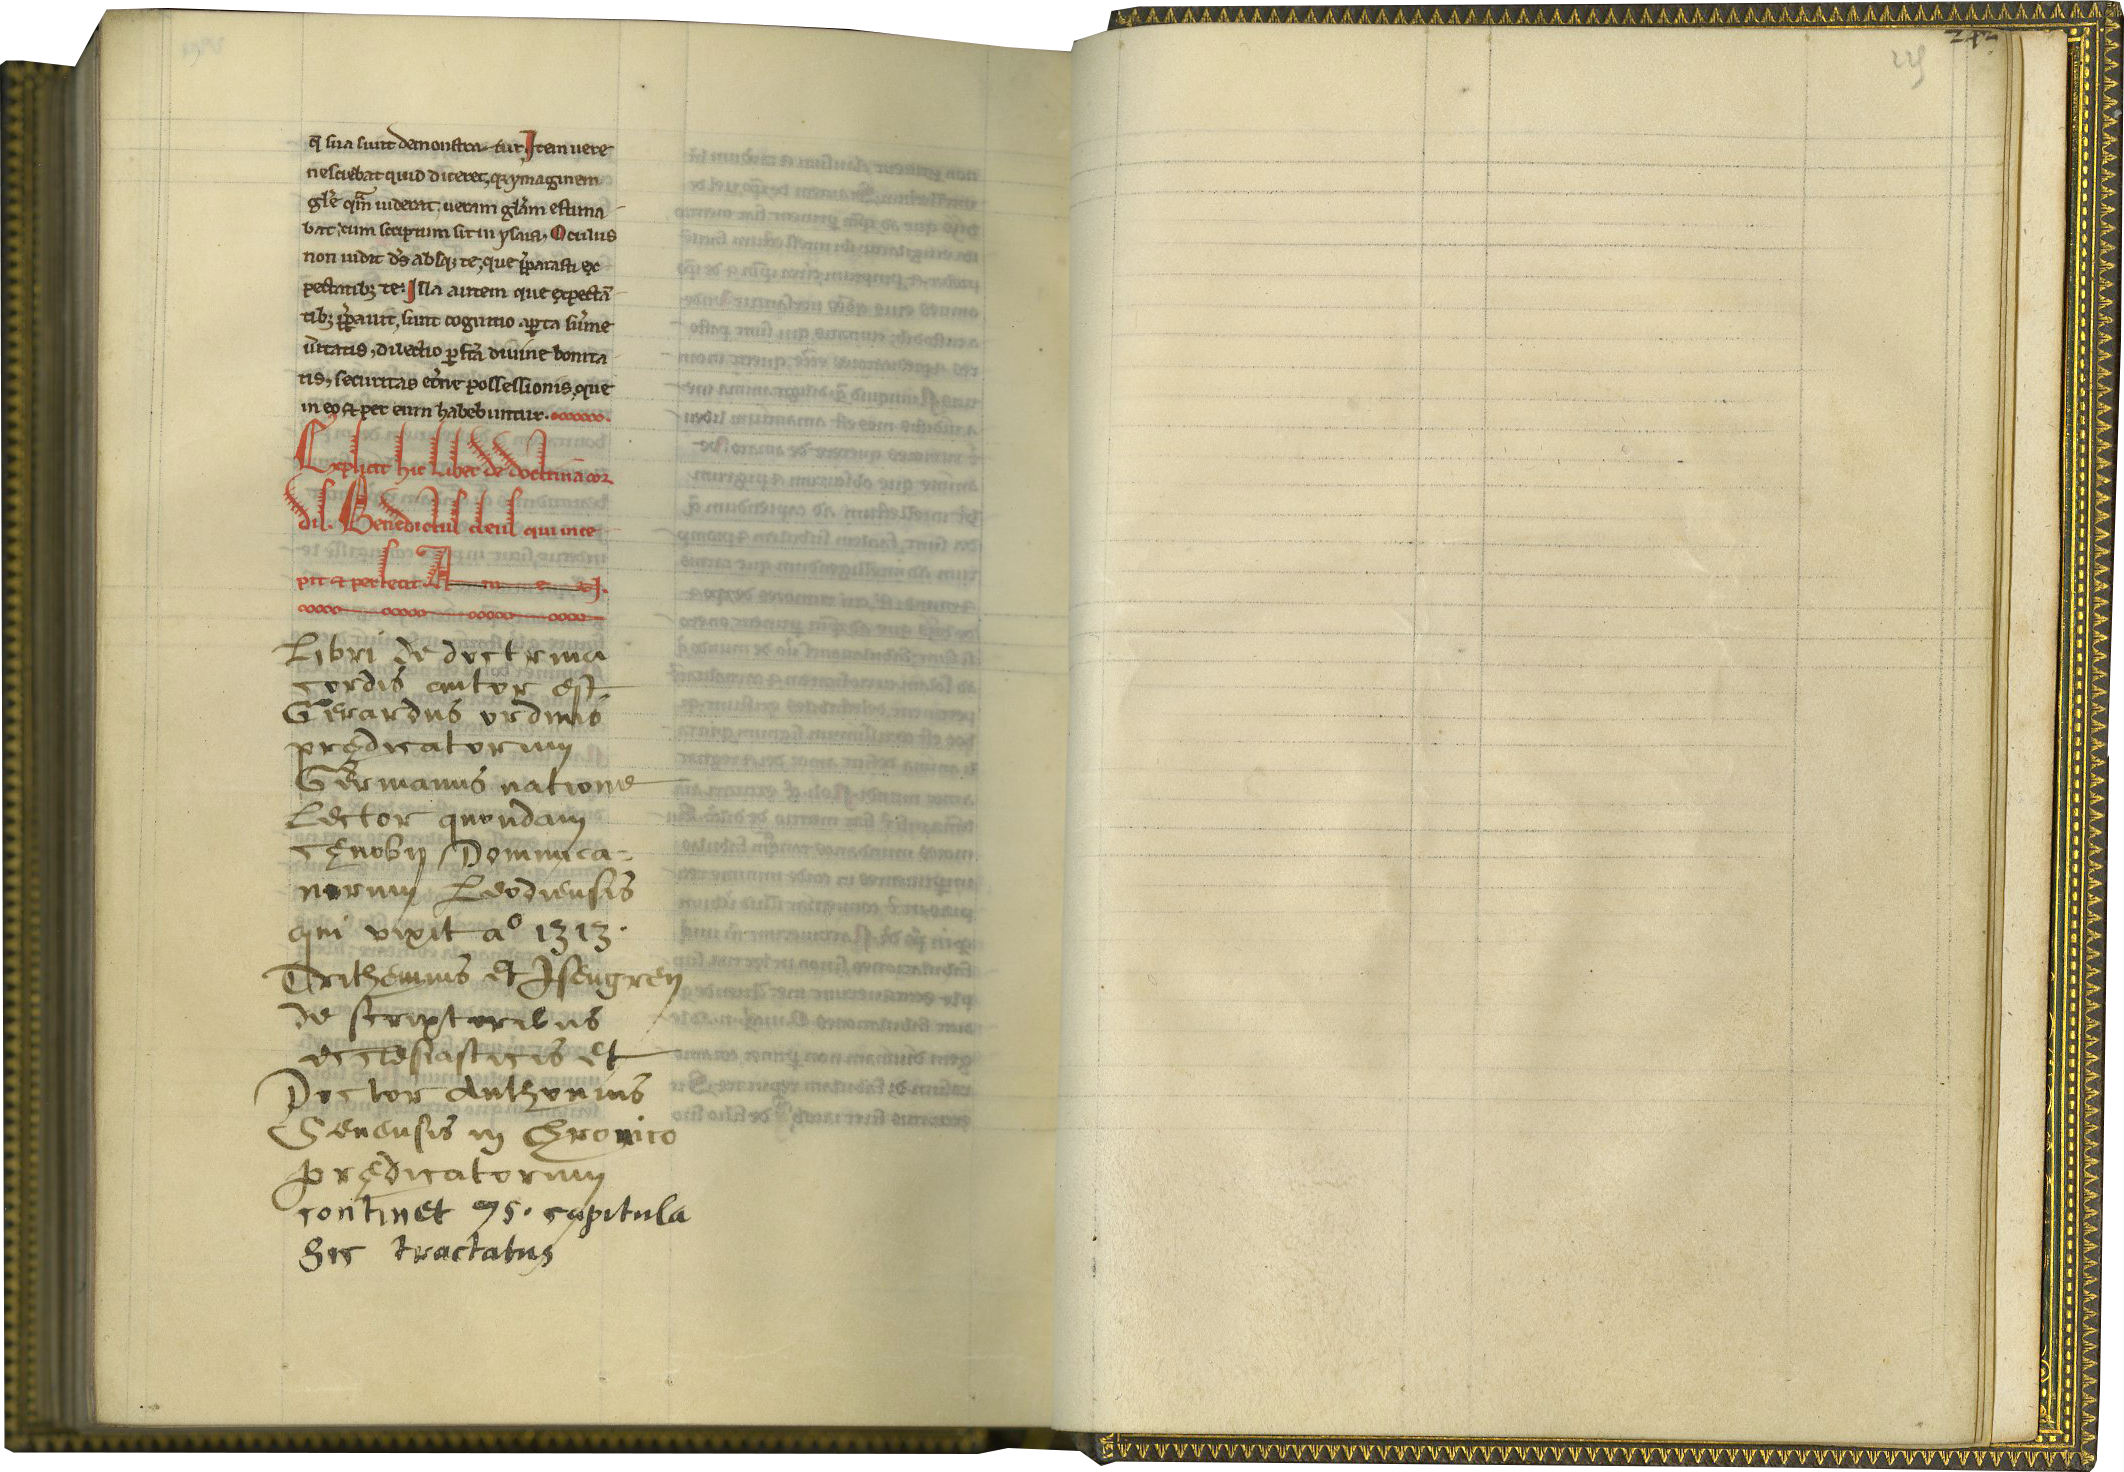 q̄ sua sunt demonstra-tur. Item vere
nesciebat quid diceret, q̇ ymaginem
gl̄e quā viderat, veram gl̄am estima-
bat, cum scriptum sit in ysaia, Oculus
non vidit ds̄ absq; te, que p̄parasti ex-
pectātib; te. Illa autem que expectā-
tib; p̄parauit, sunt cognitio aperta sūme
v̄itatis, dilectio perfc̄a diuine bonita-
tis, securitas et̄ne possessionis, que
in eo et per eum habebuntur.
Explicit hic Liber de doctrina cor-
dis. Benedictus deus qui ince-
pit et perfecit. A m e n.
Libri de doctrina
cordis autor est
Gerardus ordinis
prędicatorum
Germanus natione
Lector quondam
cęnobij Dominica=
norum Leodiensis
qui vixit aº 1313.
Trithemius et Isengren
de scriptoribus
ecclesiasticis et
Doctor Anthonius
Senensis in Chronico
prędicatorum
continet 75. capitula
hic tractatus